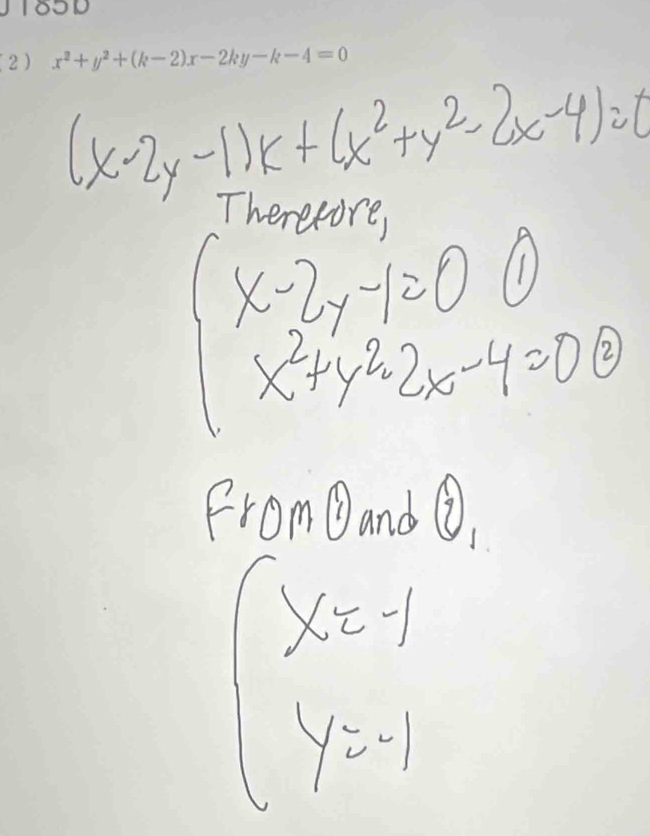 J185b
(2) x²+y²+(k−2)x−2ky−k−4=0
(x-2y-1)k+(x²+y²-2x-4)=0
Therefore,
x-2y-1=0 ①
x²+y²-2x-4=0 ②
From ① and ②,
x=-1
y=-1